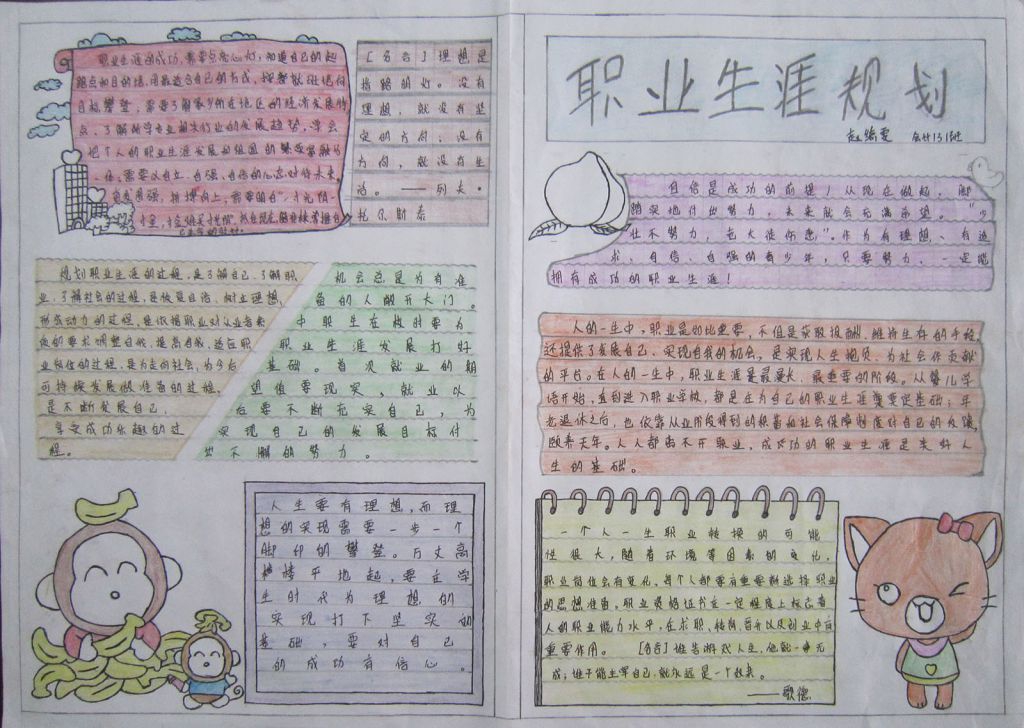 职业生涯规划
会计131班
职业生涯的成功,需要点亮心灯,知道自己的起
点和目的地,用最适合自己的方式,
目标攀登,需要了解家乡所在地区的经济发展特
点,了解所学专业相关行业的发展趋势,学会
把个人的职业生涯发展和祖国的繁荣富强融为
一体,需要以自立、自强、自信的心态对待未来,
[名言]理想是
指路明灯。没有
理想,就没有坚
定的方向;没有
方向,就没有生
活。——列夫·
托尔斯泰
规划职业生涯的过程,是了解自己、了解职
业、了解社会的过程,是恢复自信、树立理想,
形成动力的过程,是依据职业对从业者素
质的要求调整自我、提高自我、适应职
业岗位的过程,是为走向社会,为今后
可持续发展做准备的过程,
是不断发展自己,
享受成功乐趣的过
程。
机会总是为有准
备的人敞开大门。
中职生在校时要为
职业生涯发展打好
基础。首次就业的期
望值要现实,就业以
后要不断充实自己,为
实现自己的发展目标付
出不懈的努力。
人生要有理想,而理
想的实现需要一步一个
脚印的攀登。万丈高
楼平地起,要在学
生时代为理想的
实现打下坚实的
基础,要对自己
的成功有信心。
自信是成功的前提!从现在做起,脚
踏实地付出努力,未来就会充满希望。“少
壮不努力,老大徒伤悲”。作为有理想、有追
求、自信、自强的青少年,只要努力,一定能
拥有成功的职业生涯!
人的一生中,职业是如此重要,不但是获取报酬,维持生存的手段,
还提供了发展自己、实现自我的机会,是实现人生抱负、为社会作贡献
的平台。在人的一生中,职业生涯是最漫长、最重要的阶段。从婴儿学
语开始,直到进入职业学校,都是在为自己的职业生涯奠定基础;年
老退休之后,也依靠从业阶段得到的积蓄和社会保障制度对自己的反馈,
颐养天年。人人都离不开职业,成功的职业生涯是美好人
生的基础。
一个人一生职业转换的可能
性很大,随着环境等因素的变化,
职业岗位会有变化,每个人都要有重新选择职业
的思想准备。职业资格证书在一定程度上标志着
人的职业能力水平,在求职、转岗、晋升以及创业中有
重要作用。 [名言]谁若游戏人生,他就一事无
成;谁不能主宰自己,就永远是一个奴隶。
——歌德